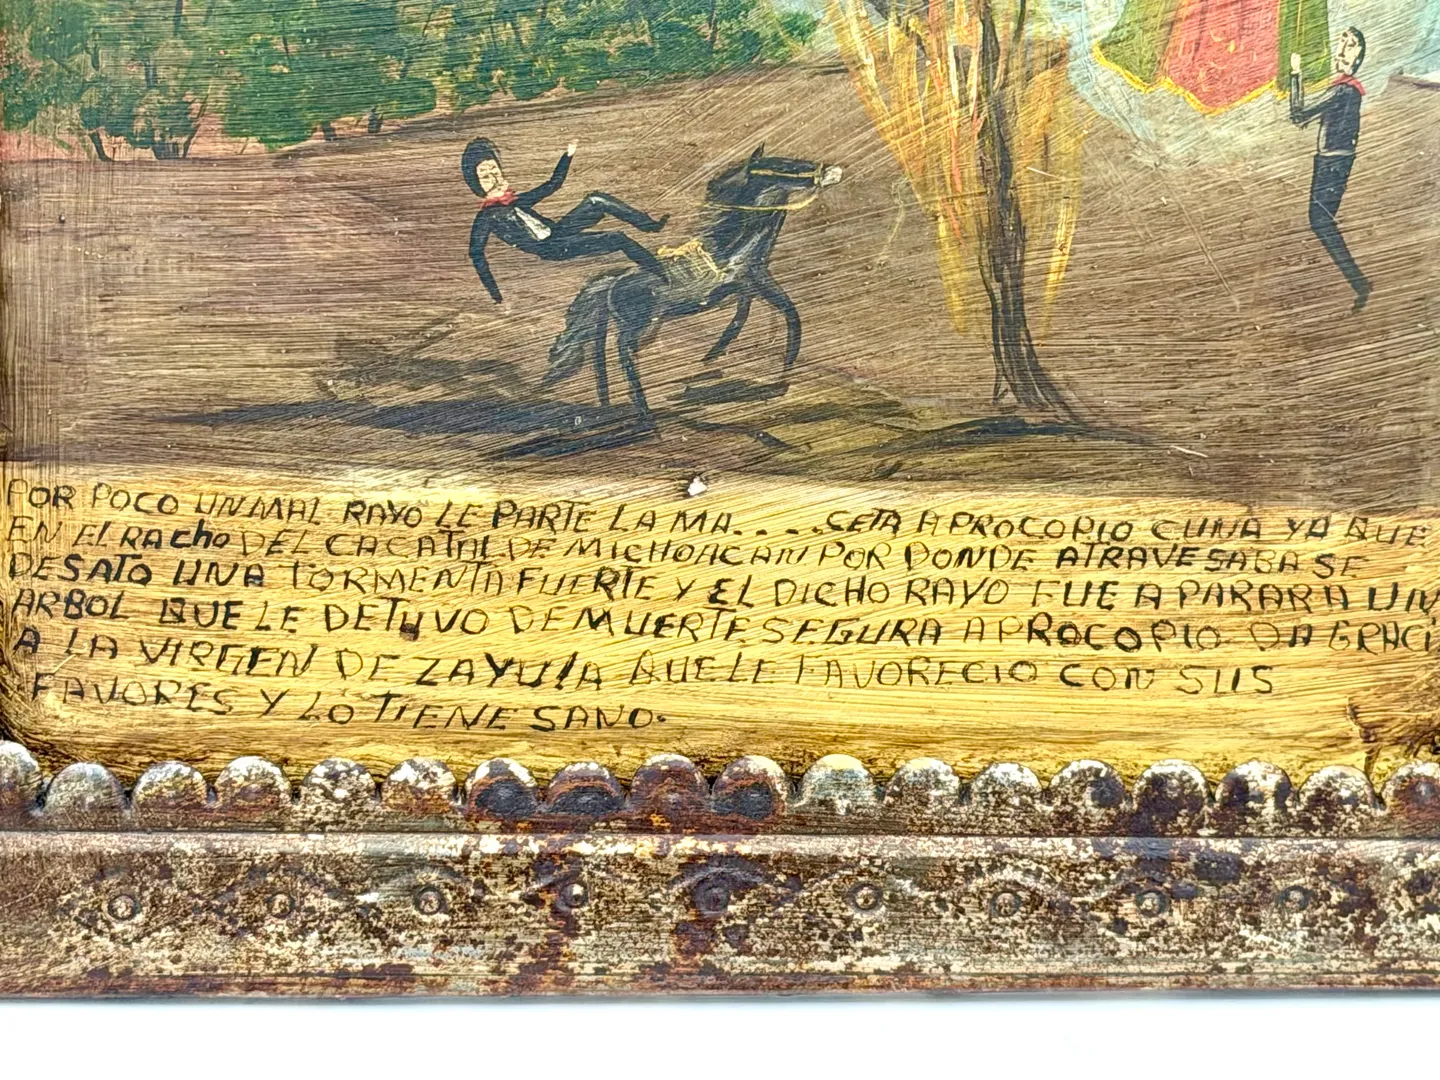 POR POCO UN MAL RAYO LE PARTE LA MA.....CETA A PROCOPIO CUNA YA QUE
EN El RAcho DEL CACATAL DE MICHOACAN POR DONDE ATRAVESABA SE
DESATO UNA TORMENTA FUERTE Y EL DICHO RAYO FUE A PARAR A UN
ARBOL QUE LE DETUVO DE MUERTE SEGURA A PROCOPIO DA GRACI
A LA VIRGEN DE ZAYUlA QUE LE FAVORECIO CON SUS
FAVORES Y LO TIENE SANO.